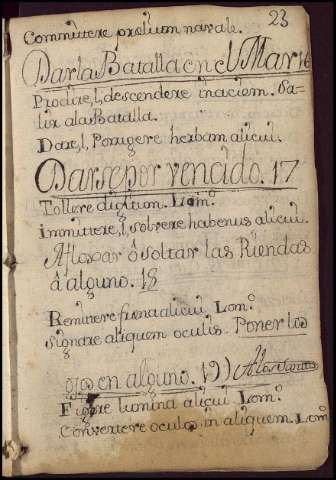 23
Committere prælium navale.
Dar la Batalla en el Mar 16
Prodire, l, descendere in aciem. Sa-
lir a la Batalla.
Dare, l, Porrigere herbam alicui.
Darse por vencido. 17
Tollere digitum. Lom.º
Immittere, l, solvere habenas alicui.
Afloxar ô soltar las Riendas
â alguno. 18
Remittere frena alicui Lom.º
Signare aliquem oculis. Poner los
ojos en alguno. 19)
Figere lumina alicui Lom.º
Convertere oculos in aliquem. Lom.º